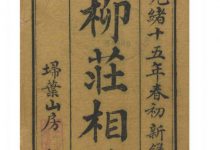 光緒十五年春初新鐫
柳莊相
埽葉山房